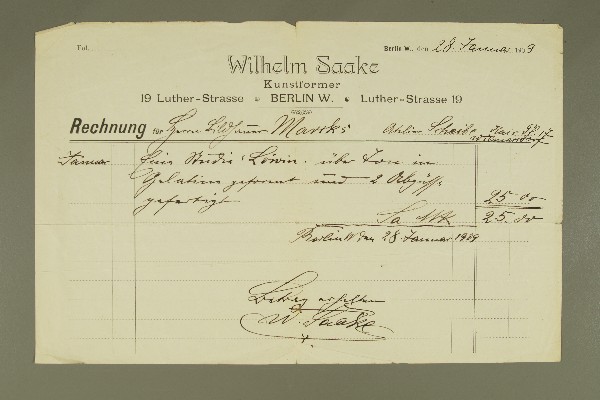 Fol.
Berlin W., den 28. Januar 1909
Wilhelm Saake
Kunstformer
19 Luther-Strasse • BERLIN W. • Luther-Strasse 19
Rechnung für Herrn Bildhauer Marcks Atelier Scheibe
Januar Eine Studie "Löwin" über Ton in
Gelatine geformt und 2 Abgüsse
gefertigt 25.00
Sa Mk 25.00
Berlin W den 28 Januar 1909
Betrag erhalten
W. Saake